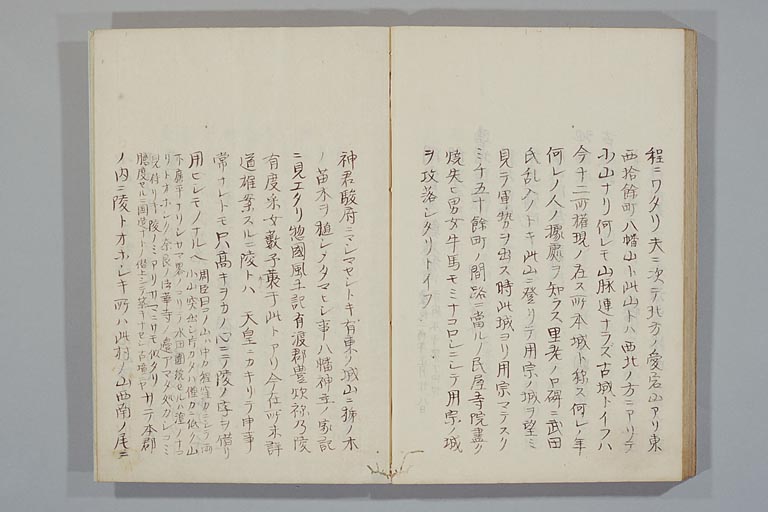 程ニワタリ夫ニ次テ北方ノ愛宕山アリ東
西拾餘町八幡山ト此山トハ西北ノ方ニアリテ
小山ナリ何レモ山脉連ナラズ古城トイフハ
今十二所権現ノ在ス所本城ト称ス何レノ年
何レノ人ノ據處ヲ知ラス里老ノ口碑ニ武田
氏乱入ノトキ此山ニ登リテ用宗ノ城ヲ望ミ
見テ軍勢ヲ出ス時此城ヨリ用宗マテスク
ミチ五十餘町ノ間路ニ當ルノ民屋寺院盡ク
焼失ヒ男女牛馬モミナコロシニシテ用宗ノ城
ヲ攻落シタリトイフ
神君駿府ニマシマセシトキ有東ノ城山ニ椎ノ木
ノ苗木ヲ植シメタマヒシ事八幡神主ノ家記
ニ見エタリ惣國風土記有渡郡豊炊祢乃陵
有度采女藪子葬于此トアリ今在所未詳
道雄案スルニ陵トハ 天皇ニカキリテ申事
常ナレトモ只高キヲカノ心ニテ陵ノ字ヲ借リ
用ヒシモノナルヘシ
サテ本郡
ノ内ニ陵トオホシキ所ハ此村ノ山西南ノ尾ニ